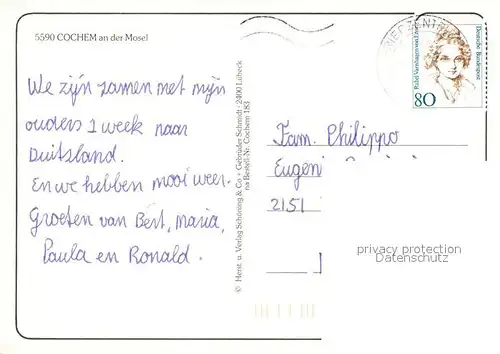 5590 COCHEM an der Mosel
We zijn zamen met mijn
ouders 1 week naar
Duitsland.
En we hebben mooi weer.
Groeten van Bert, Maria,
Paula en Ronald.
© Herst. u. Verlag Schöning & Co + Gebrüder Schmidt · 2400 Lübeck
Bestell-Nr. Cochem 183
Deutsche Bundespost
80
Fam. Philippo
Eugeni
2151
privacy protection
Datenschutz